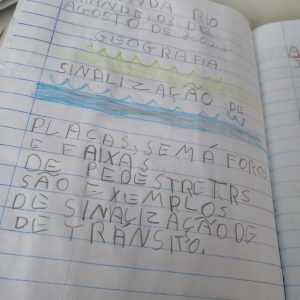 RIO
DE
AGOSTO DE
GEOGRAFIA
SINALIZAÇÃO DE
PLACAS, SEMÁFOROS
E FAIXAS
DE PEDESTRE
SÃO EXEMPLOS
DE SINALIZAÇÃO DE
DE TRÂNSITO.